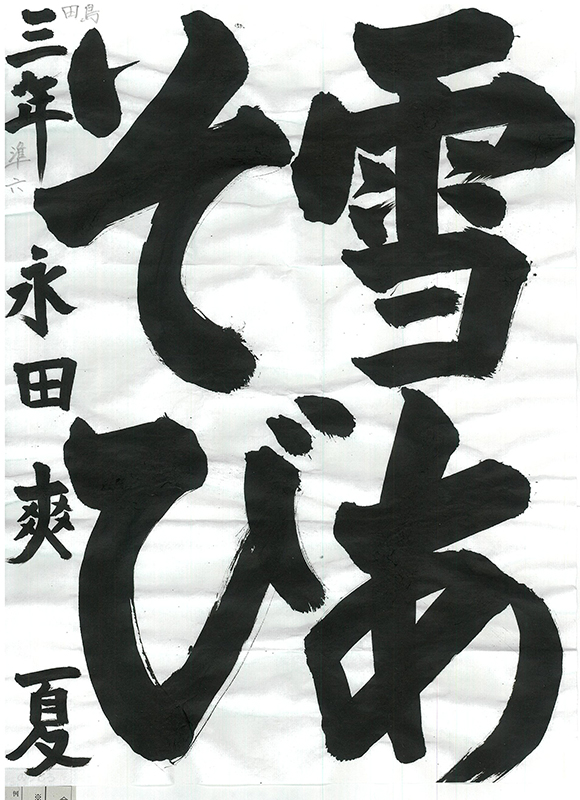 雪あ
そび
三年 永田爽夏
鳥田
準六